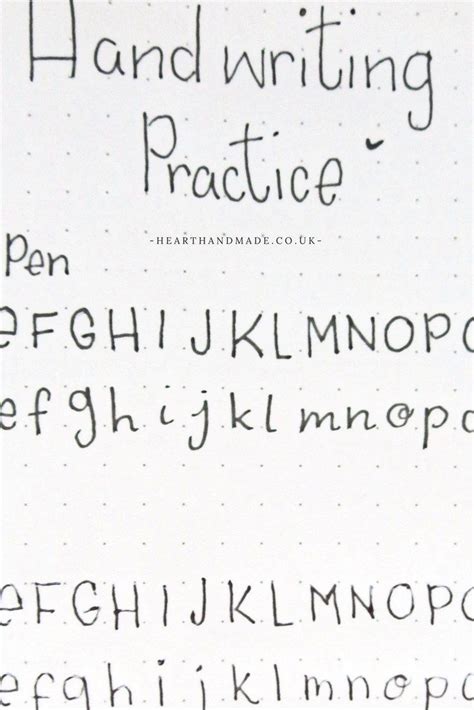 Handwriting
Practice
-HEARTHANDMADE.CO.UK-
Pen
eFGHIJKLMNOP
efghijklmnop
eFGHIJKLMNOP
efghijklmnop